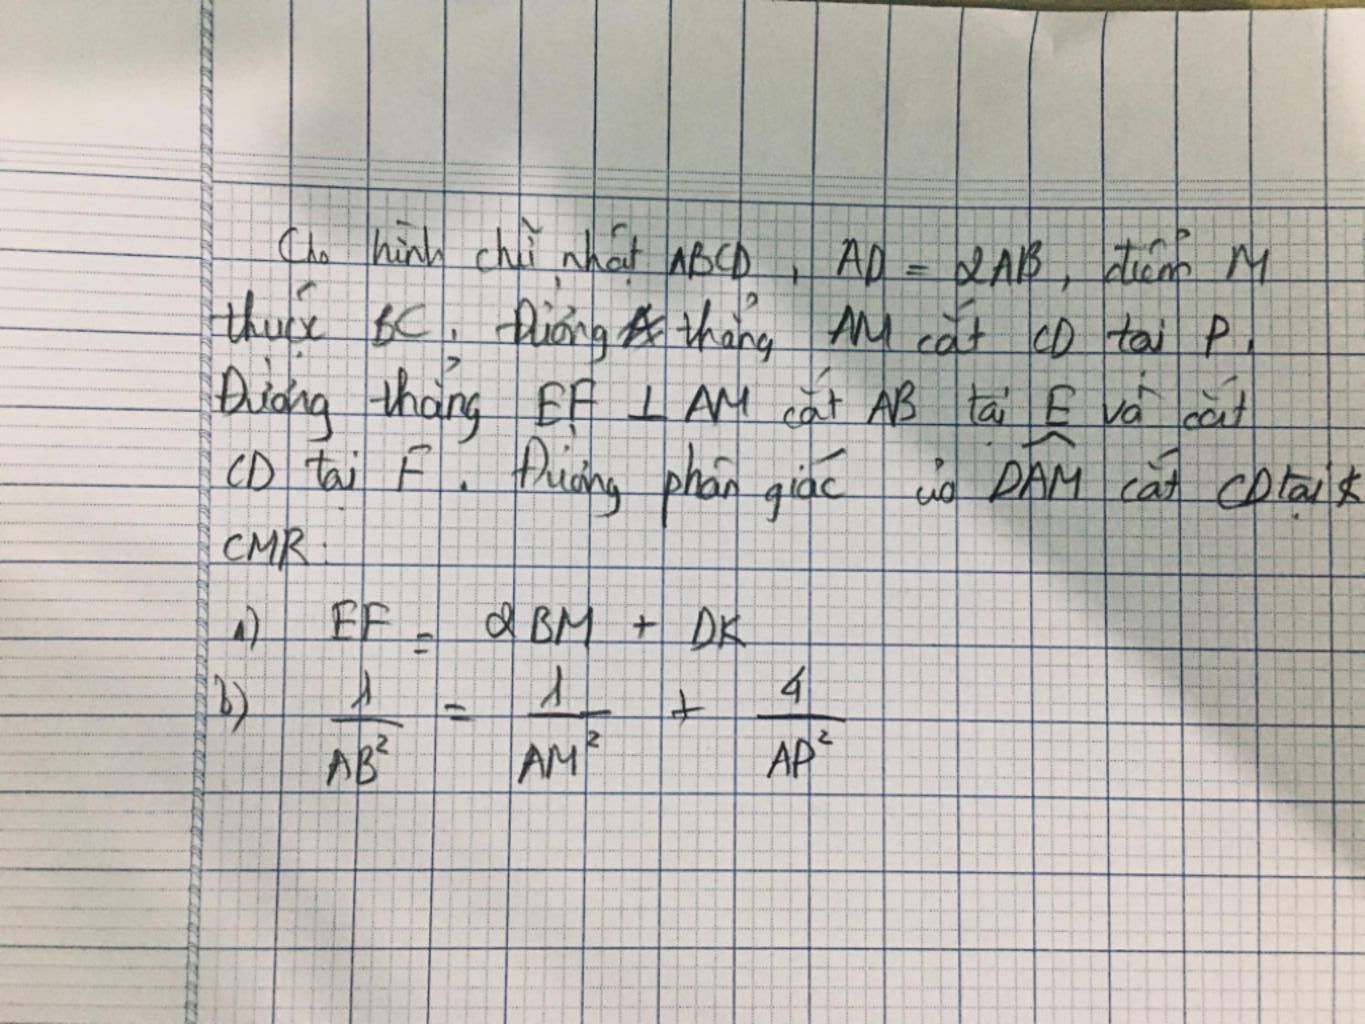 Cho hình chữ nhật ABCD, AD = 2AB, điểm M
thuộc BC. Đường thẳng AM cắt CD tại P.
Đường thẳng EF ⊥ AM cắt AB tại E và cắt
CD tại F. Đường phân giác của DAM cắt CD tại K
CMR:
a) EF = 2BM + DK
b) 1/AB² = 1/AM² + 4/AP²